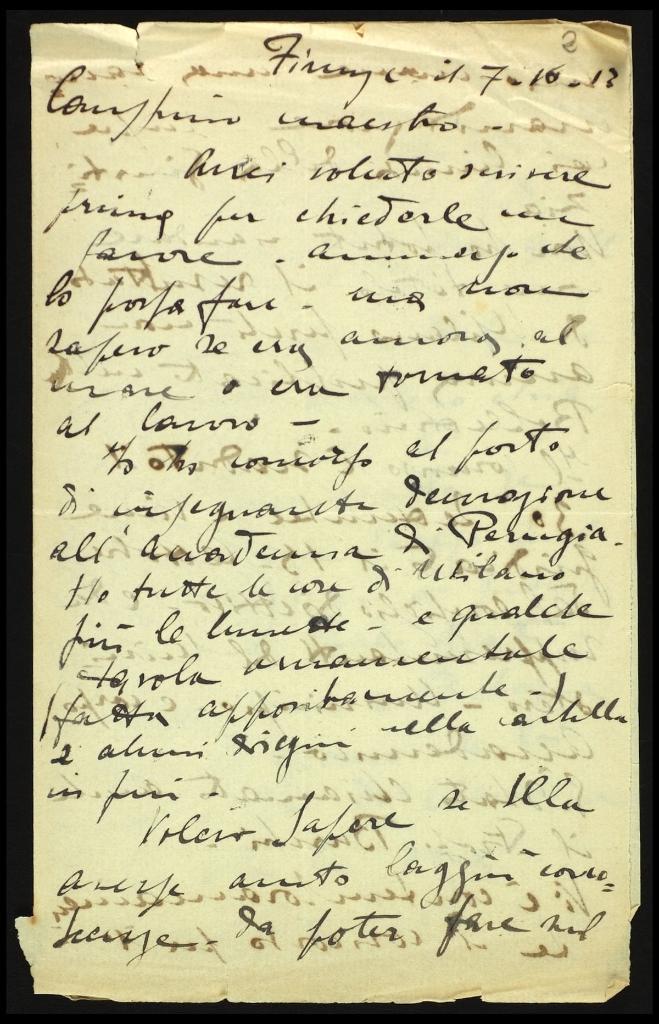 Firenze il 7-10-13
Carissimo maestro -
Avrei voluto scrivere
prima per chiederle un
favore - ammesso che
lo possa fare - ma non
sapevo se era ancora al
mare o era tornato
al lavoro -
Io ho concorso al posto
di insegnante
all'Accademia di Perugia.
Ho tutte le cose di Milano
più le lunette - e qualche
tavola ornamentale
(fatta appositamente -)
e alcuni disegni nella cartella
in più -
Volevo sapere se Ella
avesse avuto laggiù cono=
scenze - da poter fare nel